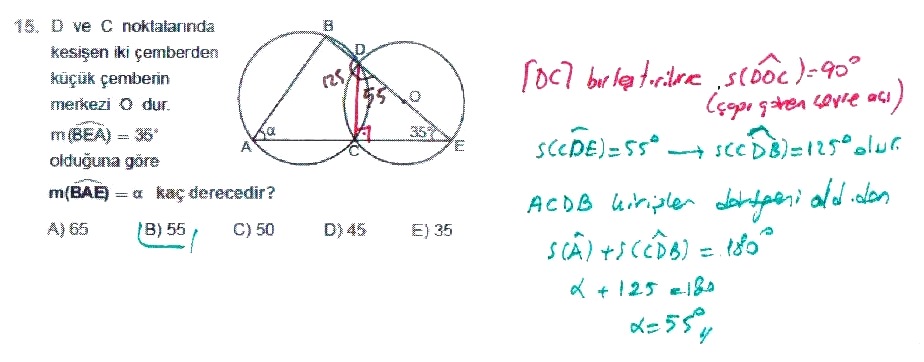 15. D ve C noktalarında
kesişen iki çemberden
küçük çemberin
merkezi O dur.
m(BEA) = 35°
olduğuna göre
m(BAE) = α kaç derecedir?
A) 65 B) 55 C) 50 D) 45 E) 35
B
D
125
55
O
α
35°
A
C
E
[DC] birleştirilirse, s(DOC)=90°
(çapı gören çevre açı)
s(CDE)=55° → s(CDB)=125° olur.
ACDB kirişler dörtgeni old.dan
s(A)+s(CDB) = 180°
α + 125 = 180
α = 55°